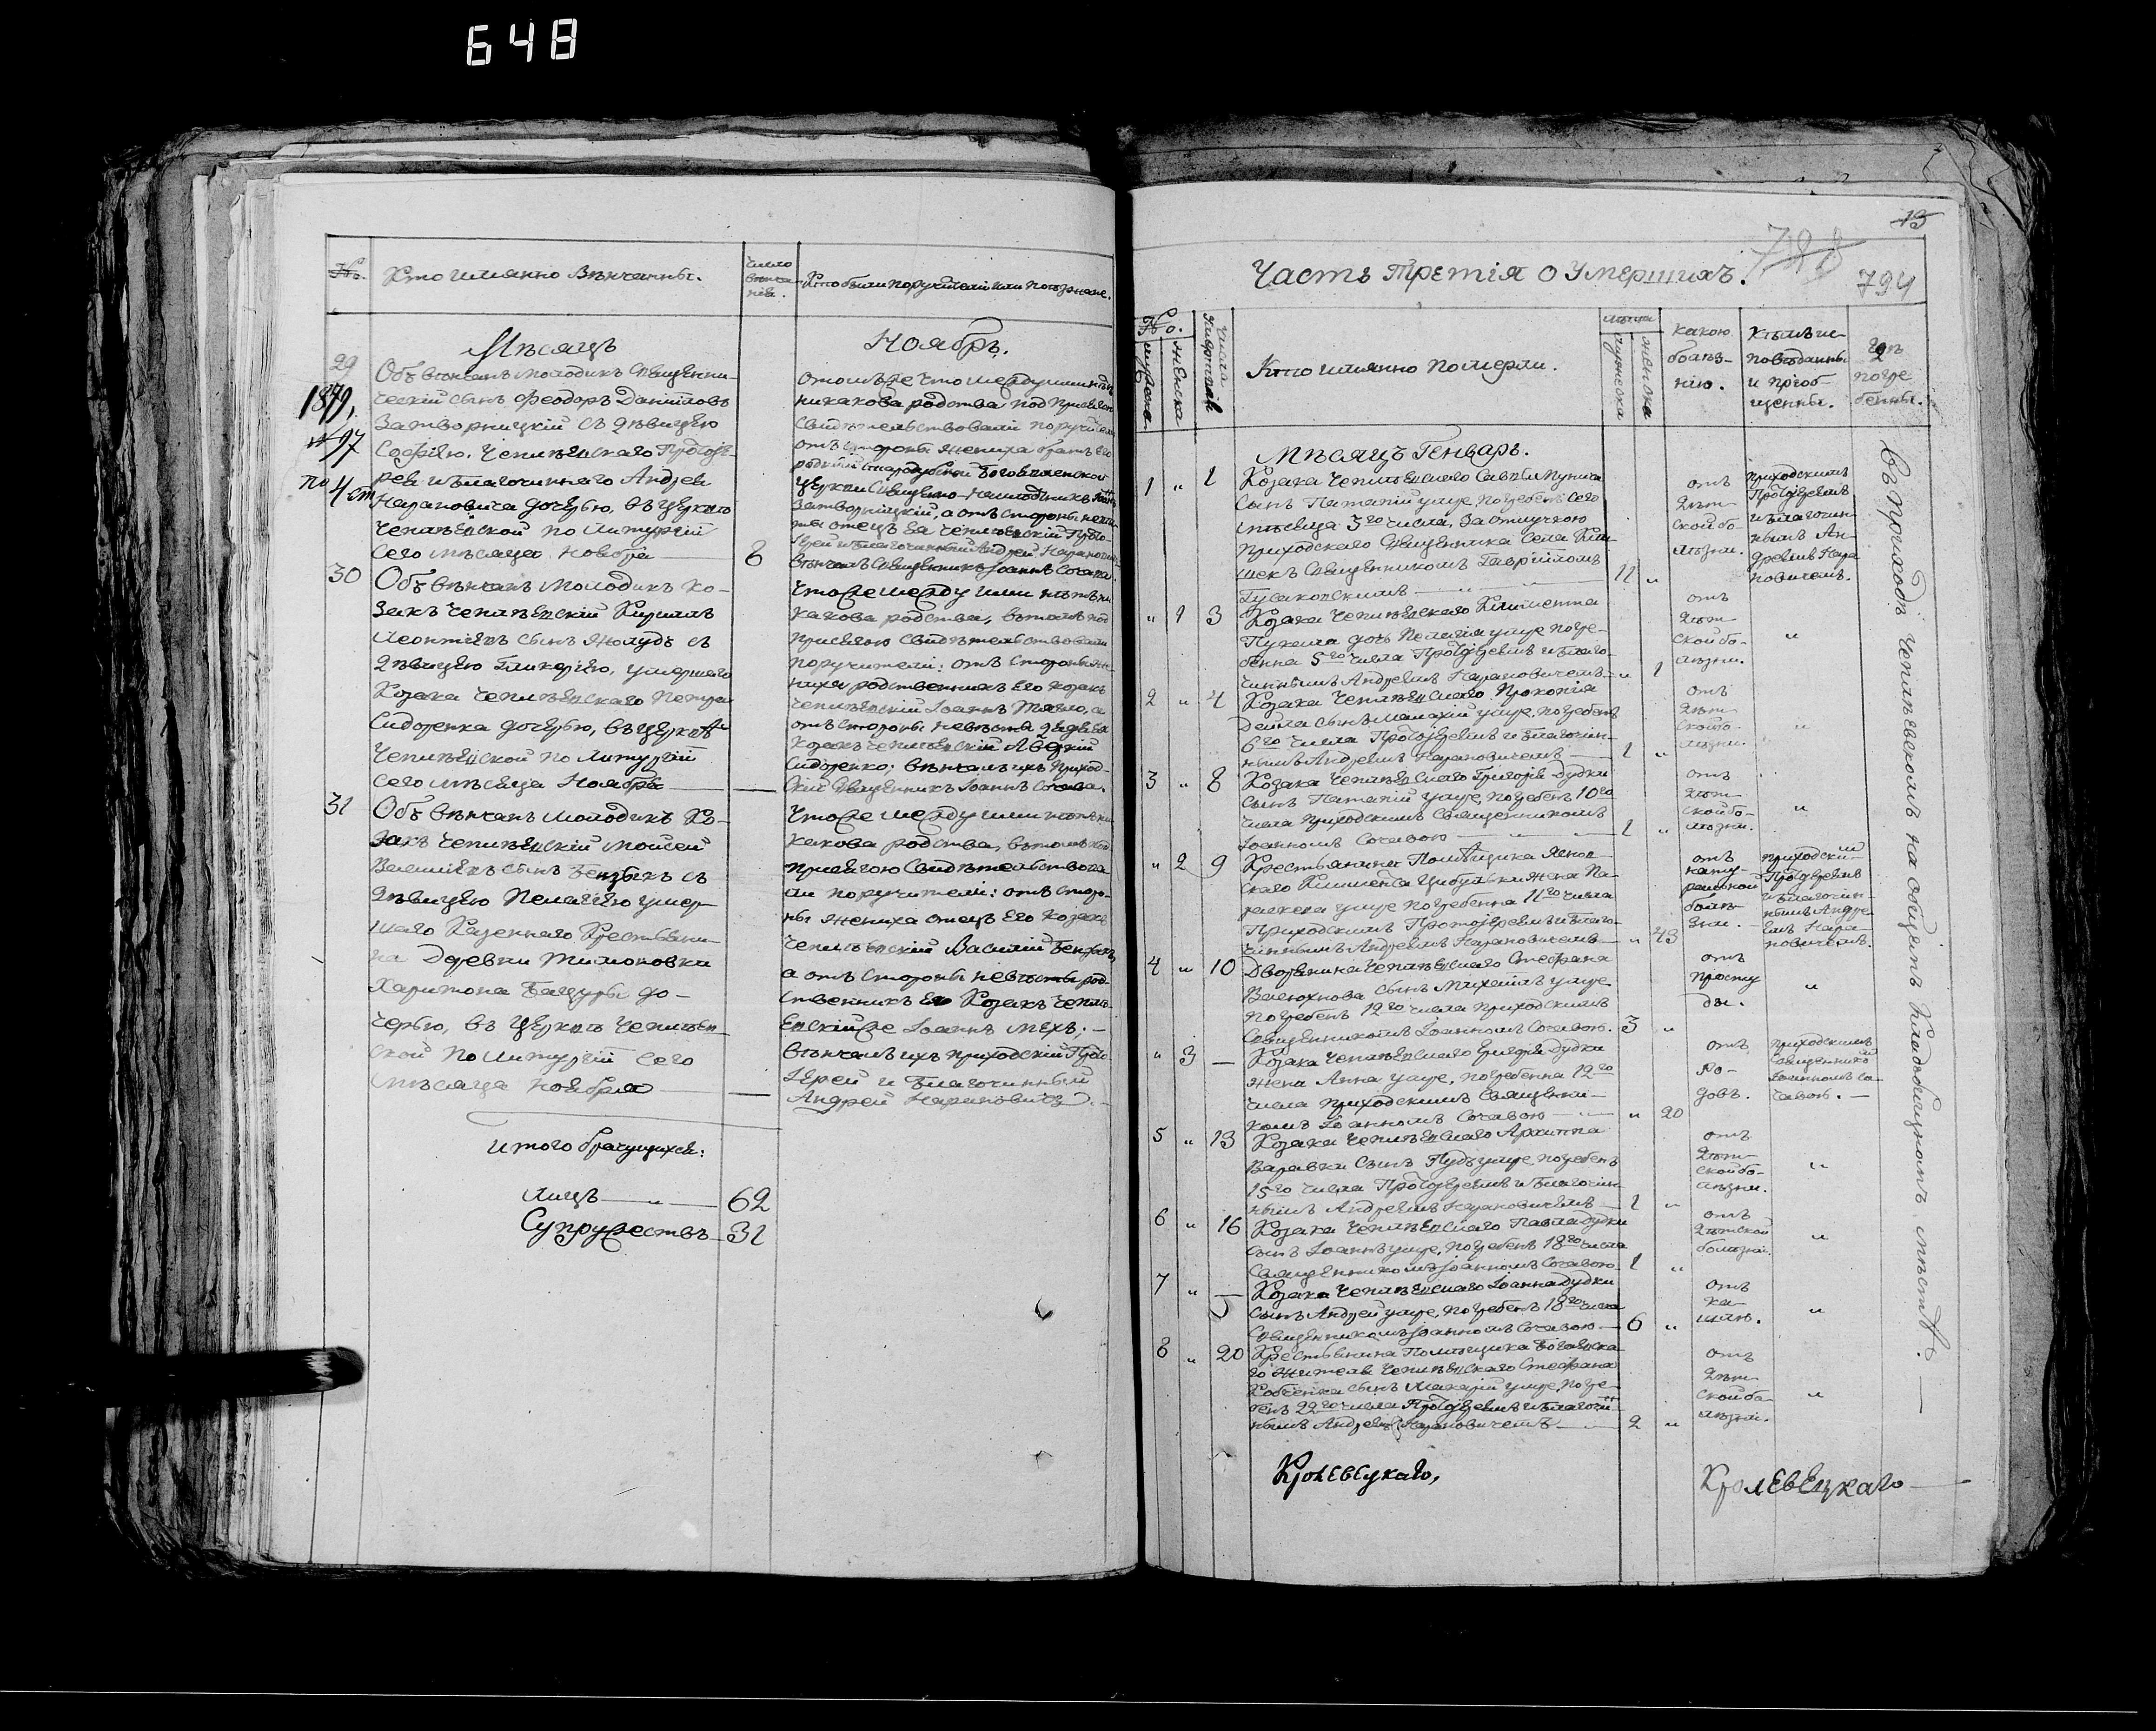 648
№.
Кто имянно Вѣнчанны.
Число вѣнча-
нія.
Кто были поручители или поѣзжане.
Мѣсяцъ
Ноябрь.
29
Объ вѣнчанъ молодикъ Священни-
ческій сынъ Феодоръ Даніиловъ
Затворницкій съ дѣвицею
Софіею. Чеплѣевскаго Протоіе-
рея и благочиннаго Андрея
Нарановича дочерью, въ церкви
Чеплѣевской по литургіи
сего мѣсяца Ноября
8
1879,
№97
по 4 ст
никакова родства под присягою
свидѣтельствовали поручители
отъ стороны жениха братъ его
Затворницкій, а отъ стороны невѣ-
сты отецъ ея Чеплѣевскій Прото-
іерей и благочинный Андрей Нарановичъ
вѣнчалъ Священникъ Іоаннъ Сочава.
30
Объ вѣнчанъ молодикъ Ко-
закъ Чеплѣевскій Кириллъ
Леонтіевъ сынъ Жолудь съ
дѣвицею Гликеріею, умершаго
Козака Чеплѣевскаго Петра
Сидоренка дочерью, въ церквѣ
Чеплѣевской по литургіи
сего мѣсяца Ноября
Что же между ими нѣтъ ни
какова родства, въ томъ под
присягою свидѣтельствовали
поручители: отъ стороны же-
ниха родственникъ его Козакъ
Чеплѣевскій Іоаннъ Тягло, а
отъ стороны невѣсты дядя ея
Козакъ Чеплѣевскій Авдкій
Сидоренко; вѣнчалъ ихъ приход-
скій Священникъ Іоаннъ Сочава.
31
Объ вѣнчанъ молодикъ Ко-
закъ Чеплѣевскій Моисей
Василіевъ сынъ Бензыкъ съ
дѣвицею Пелагіею умер-
шаго Казеннаго Крестьяни-
на Деревни Тимоновки
Харитона Бацуры до-
черью, въ церквѣ Чеплѣев-
ской по литургіи сего
мѣсяца Ноября
Что же между ими нѣтъ ни
какова родства, въ томъ под
присягою свидѣтельствова
ли поручители: отъ сторо-
ны жениха отецъ его Козакъ
Чеплѣевскій Василій Бензыкъ,
а отъ стороны невѣсты род-
ственникъ ея Козакъ Чеплѣ-
евскій же Іоаннъ Мехъ. —
вѣнчалъ ихъ приходскій Прото-
Іерей и Благочинный
Андрей Нарановичъ. —
Итого брачущихся:
Лицъ — „ — 62
Супружествъ — 31
13
728
794
Часть третія о Умершихъ.
№.
мужеска.
женска
Числа
умертвія
Кто имянно померли.
лѣта
мужеска
женска
какою
болѣз-
нію.
Кѣмъ ис-
повѣданны
и пріоб-
щенны.
гдѣ
погре
бенны.
Мѣсяцъ Генварь.
1 „ 1
Козака Чеплѣевскаго Саввы
сынъ Патапій умре, погребенъ сего
мѣсяца 3го числа, за отлучкою
приходскаго Священника села
Священникомъ Гавріиломъ
Гусаковскимъ — „ —
11 „
отъ
дѣт-
ской бо-
лѣзни.
приходскимъ
Протоіереемъ
и благочин-
нымъ Ан-
дреемъ Нара
новичемъ.
„ 1 3
Козака Чеплѣевскаго Климента
дочь Пелагія умре погре-
бенна 5го числа Протоіереемъ и Благо-
чиннымъ Андреемъ Нарановичемъ
„ 1
отъ
дѣт-
ской бо-
лѣзни.
„
2 „ 4
Козака Чеплѣевскаго Прокопія
Дейла сынъ Малахій умре, погребенъ
6го числа Протоіереемъ и благочин-
нымъ Андреемъ Нарановичемъ
1 „
отъ
дѣт-
ской бо-
лѣзни.
„
3 „ 8
Козака Чеплѣевскаго Григорія Дудки
сынъ Патапій умре, погребенъ 10го
числа приходскимъ Священникомъ
Іоанномъ Сочавою
1 „
отъ
дѣт-
ской бо-
лѣзни.
„
„ 2 9
Крестьянина Помѣщика Яснов-
скаго Климента Цибульки жена Па-
раскева умре погребенна 11го числа
Приходскимъ Протоіереемъ и Благо-
чиннымъ Андреемъ Нарановичемъ
„ 43
отъ
нату-
ральной
болѣ-
зни.
приходским
Протоіереемъ
и благочин-
нымъ Андре-
емъ Нара-
новичемъ.
4 „ 10
Дворянина Чеплѣевскаго Стефана
Валюхнова сынъ Михаилъ умре
погребенъ 12го числа приходскимъ
Священникомъ Іоанномъ Сочавою.
3 „
отъ
просту
ды.
„
„ 3 —
Козака Чеплѣевскаго Григорія Дудки
жена Анна умре, погребенна 12го
числа приходскимъ Священни-
комъ Іоанномъ Сочавою
„ 20
отъ
Ро-
довъ.
приходскимъ
Священником
Іоанномъ Со-
чавою. —
5 „ 13
Козака Чеплѣевскаго Архиппа
Варавки сынъ Пудъ умре погребенъ
15го числа Протоіереемъ и Благочин-
нымъ Андреемъ Нарановичемъ
1 „
отъ
дѣт-
ской бо-
лѣзни.
„
6 „ 16
Козака Чеплѣевскаго Павла Дудки
сынъ Іоаннъ умре, погребенъ 18го числа
Священникомъ Іоанномъ Сочавою
1 „
отъ
дѣтской
болѣзни.
„
7 „ —
Козака Чеплѣевскаго Іоанна Дудки
сынъ Андрей умре, погребенъ 18го числа
Священникомъ Іоанномъ Сочавою
6 „
отъ
ка-
шлю.
„
8 „ 20
Крестьянина Помѣщика
го жителя Чеплѣевскаго Стефана
сынъ Макарій умре, погре-
бенъ 22го числа Протоіереемъ и Благочи
ннымъ Андреемъ Нарановичемъ
2 „
отъ
дѣт-
ской бо-
лѣзни.
„
Въ приходѣ Чеплѣевскомъ на общемъ Кладбищномъ мѣстѣ.
Кролевецкаго,
Кролевецкаго